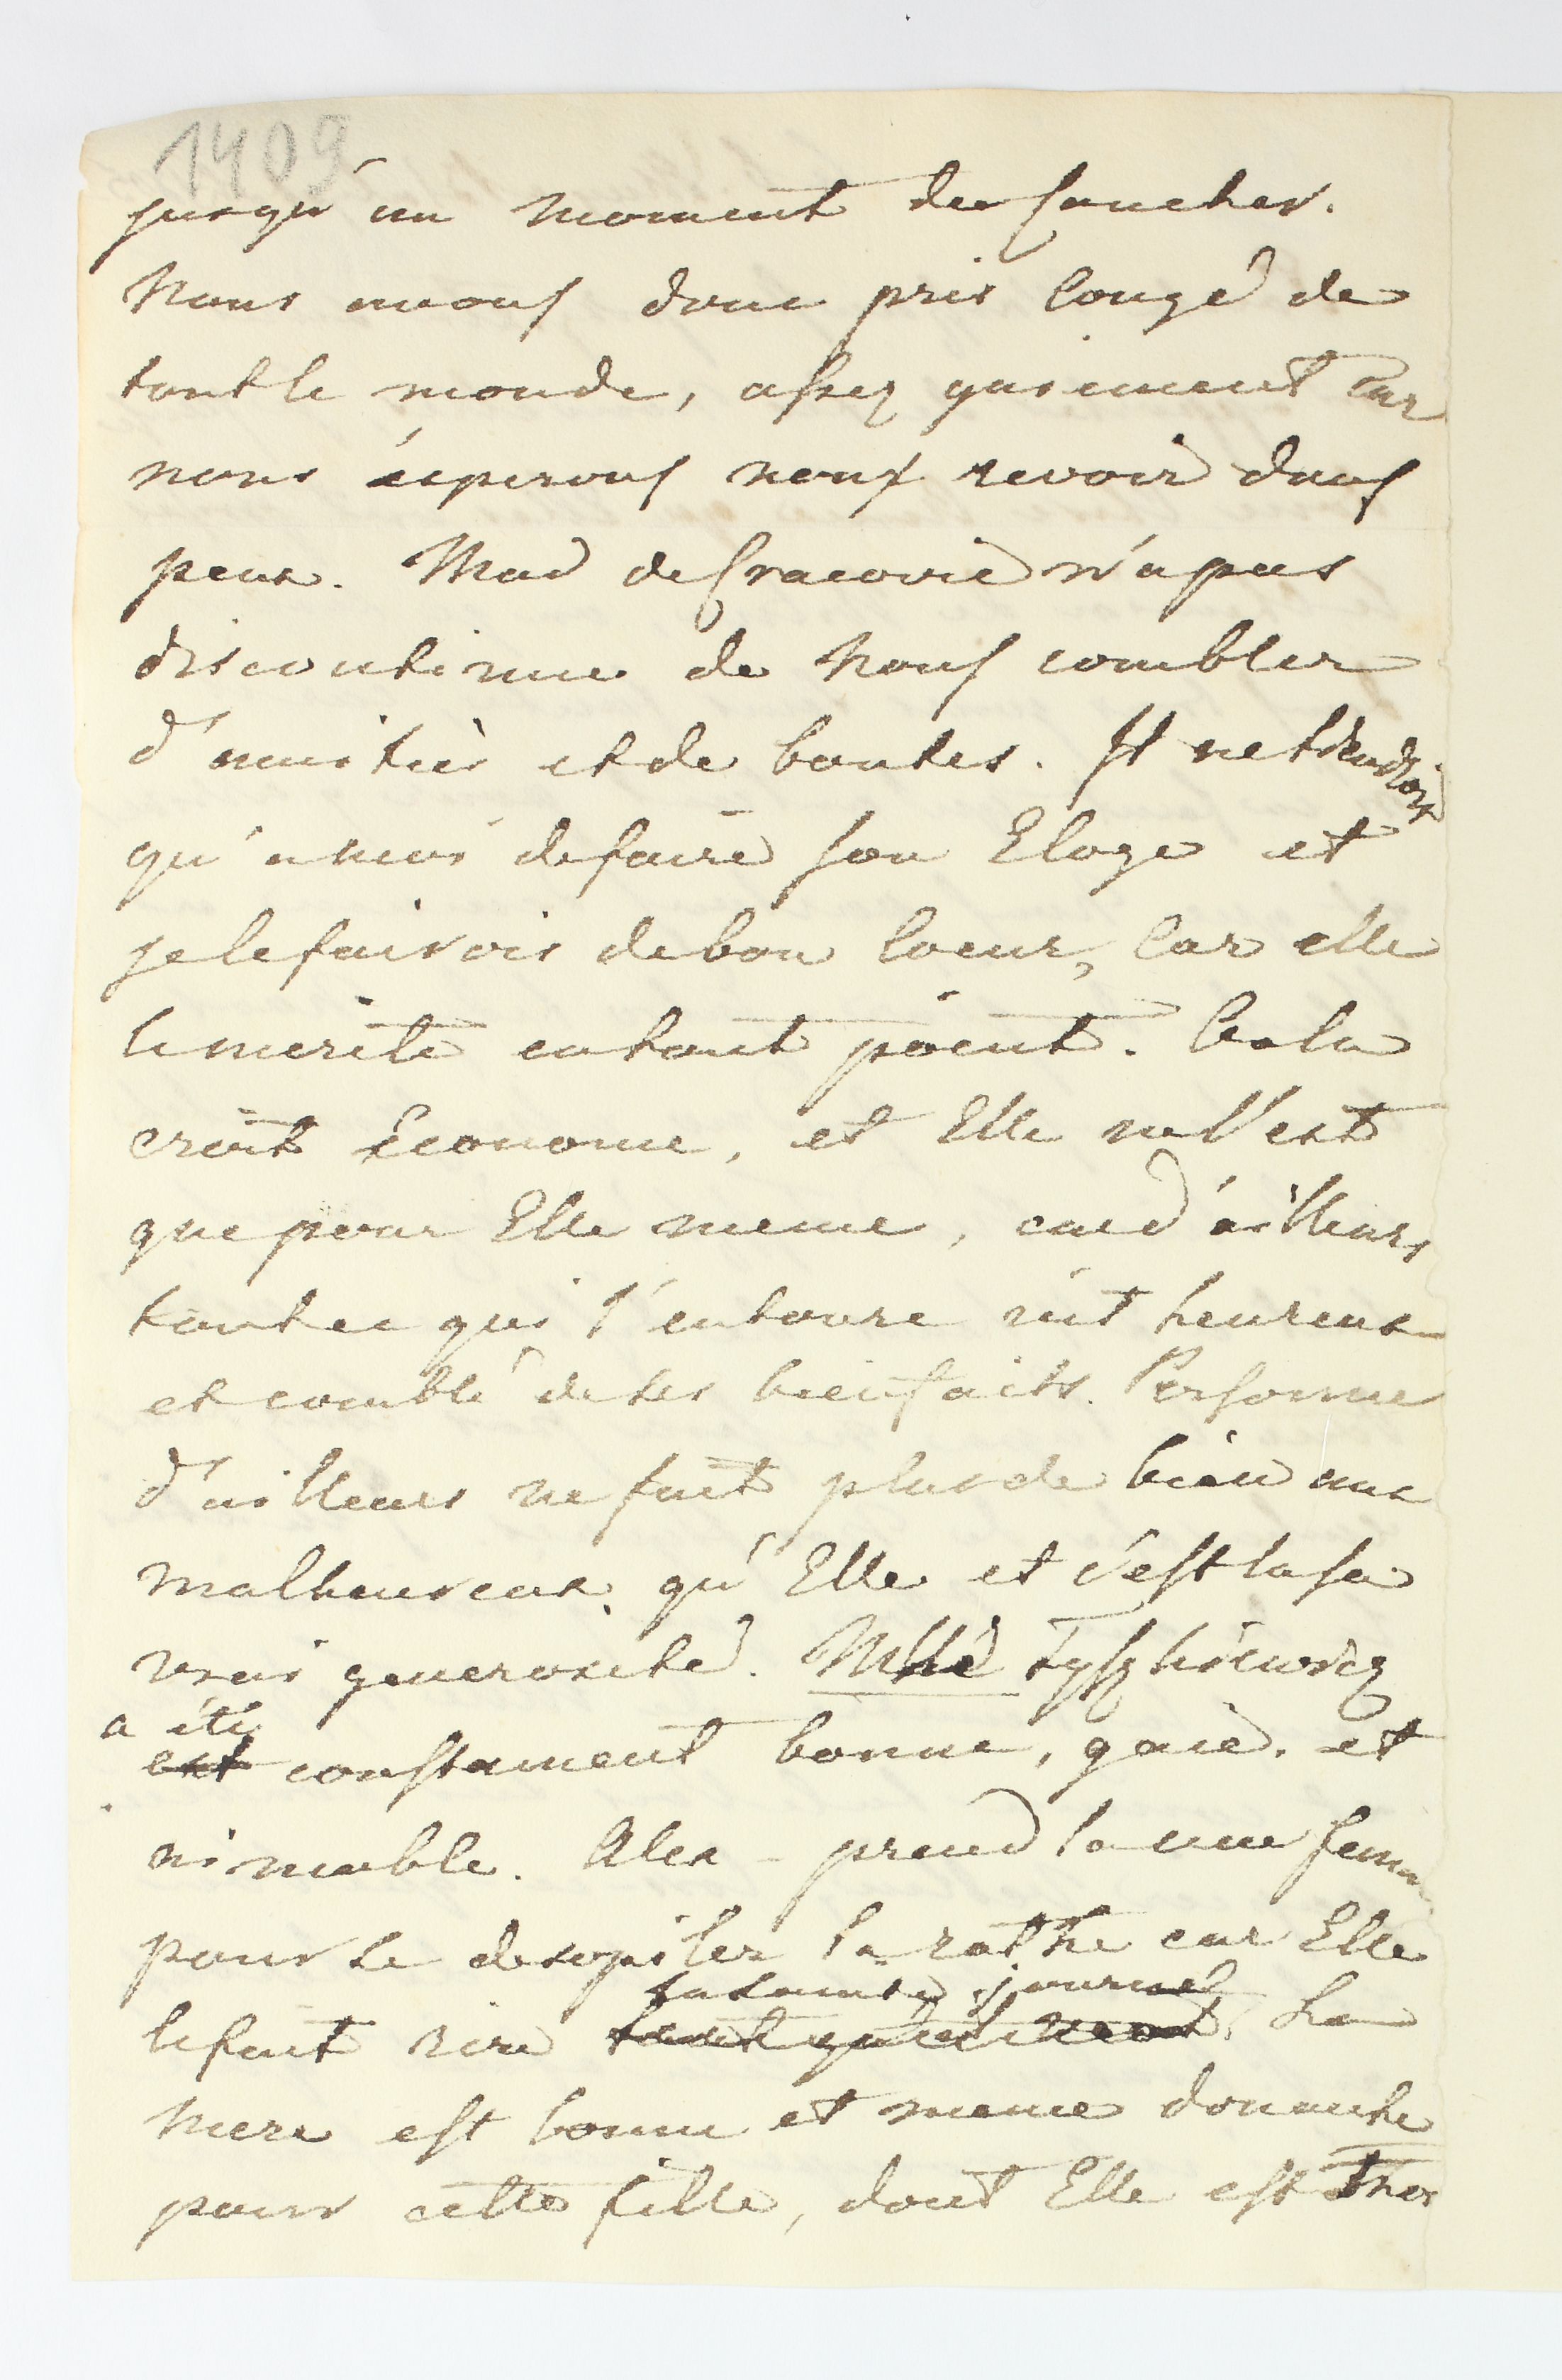 1409
jusqu'au moment du coucher.
Nous avons donc pris congé de
tout le monde, assez gaiement car
nous ésperons nous revoir dans
peux. Mad de Cracovie n'a pas
discontinue de nous combler
d'amitiés et de bontés. Il ne tiendroit
qu'a moi de faire son Eloge et
je le faisois de bon coeur, car elle
le merite en tout point. On la
croit économe, et Elle ne l'est
que pour Elle meme, car d'ailleurs
tout ce qui l'entoure vit heureux
et comblé de ses bienfaits. Personne
d'ailleurs ne fait plus de bien aux
malheureux qu'Elle et c'est la sa
vrai generosité. Mlle Tyszkiewicz
a été
est constament bonne, gaie, et
aimable. Alex - prend la une femme
pour se desopiler la rathe car Elle
la sainte journée
le fait rire tant qu'il veut. La
mere est bonne et meme donante
pour cette fille, dont Elle est tres